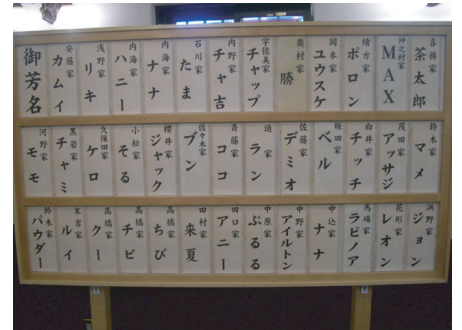 各務家 茶太郎
仲之村家 MAX
緒方家 ポロン
岡本家 ユウスケ
奥村家 勝
宇佐美家 チャップ
内野家 チャ吉
石川家 たま
内海家 ナナ
内海家 ハニー
浅野家 リキ
安藤家 カムイ
御芳名
鈴木家 マメ
茂田家 アッサジ
白井家 チッチ
坂田家 ベル
佐藤家 デミオ
迫家 ラン
斉藤家 ココ
佐々木家 ブン
櫻井家 ジャック
小松家 そる
久保田家 ケロ
黒岩家 チャミ
河野家 モモ
浜野家 ジョン
花形家 レオン
馬場家 ラピノア
中込家 ナナ
中野家 アイルトン
中原家 ぷるる
田口家 アニー
田村家 来夏
高橋家 ちび
高橋家 チビ
高橋家 クー
末吉家 ルイ
鈴木家 パウダー